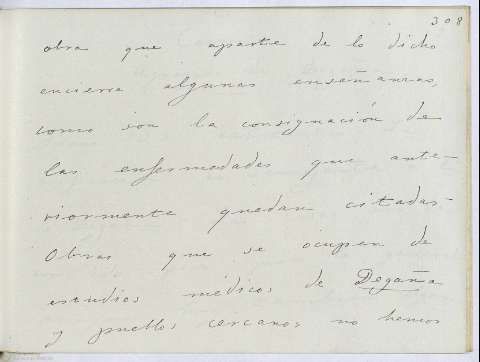 308
obra que aparte de lo dicho
encierra algunas enseñanzas,
como son la consignación de
las enfermedades que ante-
riormente quedan citadas-
Obras que se ocupen de
estudios médicos de Degaña
y pueblos cercanos no hemos